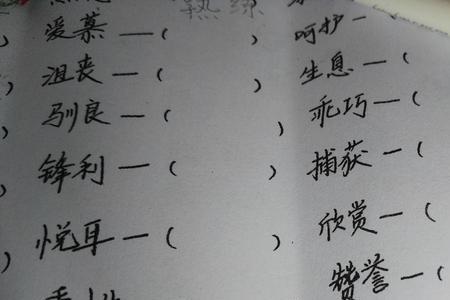 熟练
爱慕—（ ） 呵护—（
）沮丧—（ ） 生息—（
）驯良—（ ） 乖巧—（
）锋利—（ ） 捕获—（
）悦耳—（ ） 欣赏—（
赞誉—（